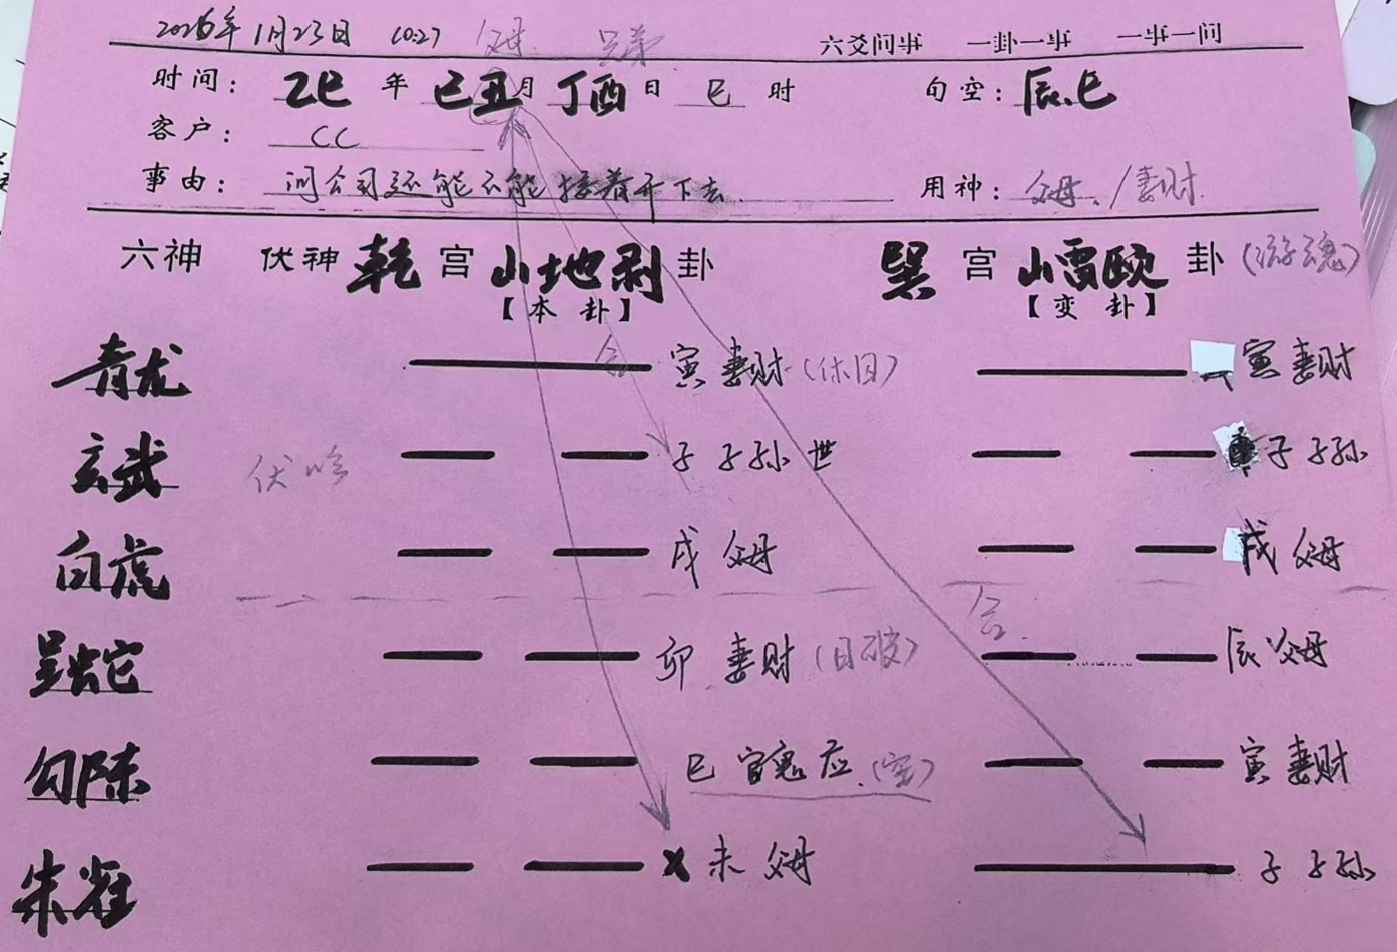 2026年1月23日 10:27 父母 兄弟 六爻问事 一卦一事 一事一问
时间: 乙巳 年 己丑 月 丁酉 日 巳 时 旬空: 辰、巳
客户: CC
事由: 问公司还能不能接着开下去. 用神: 父母./妻财
六神 伏神 乾 宫 山地剥 卦 巽 宫 山雷颐 卦 (游魂)
【本卦】 【变卦】
青龙 合 寅 妻财 (休囚) 寅 妻财
玄武 伏吟 子 子孙 世 子 子孙
白虎 戌 父母 戌 父母
合.
螣蛇 卯 妻财 (日破) 辰 父母
勾陈 巳 官鬼 应.(空) 寅 妻财
朱雀 x 未 父母 子 子孙